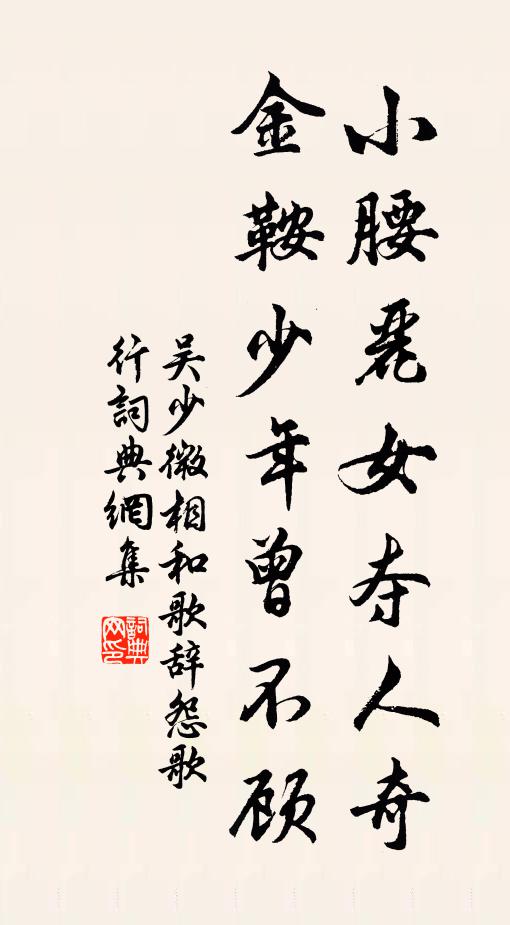 小腰麗女夺人奇
金鞍少年曾不顾
吴少微相和歌辞怨歌
行詞典網集
詞典
网印